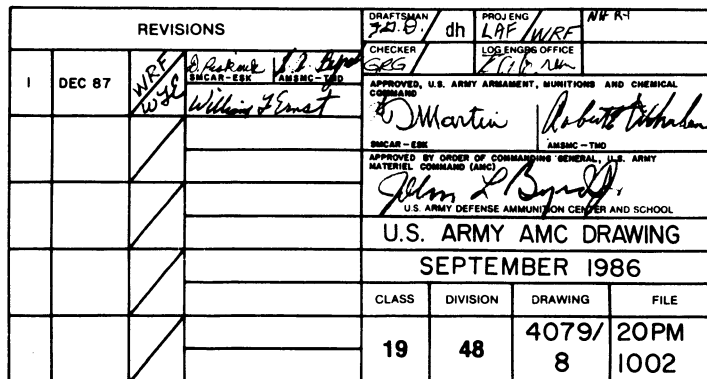 REVISIONS
1 DEC 87 WRF
SMCAR-ESK AMSMC-TMD
William F Ernst
DRAFTSMAN dh PROJ ENG LAF/WRF
CHECKER GRG LOG ENGRG OFFICE
APPROVED, U.S. ARMY ARMAMENT, MUNITIONS AND CHEMICAL
COMMAND
Martin
SMCAR-ESK AMSMC-TMD
APPROVED BY ORDER OF COMMANDING GENERAL, U.S. ARMY
MATERIEL COMMAND (AMC)
John L Byrd Jr.
U.S. ARMY DEFENSE AMMUNITION CENTER AND SCHOOL
U.S. ARMY AMC DRAWING
SEPTEMBER 1986
CLASS DIVISION DRAWING FILE
19 48 4079/ 20PM
8 1002